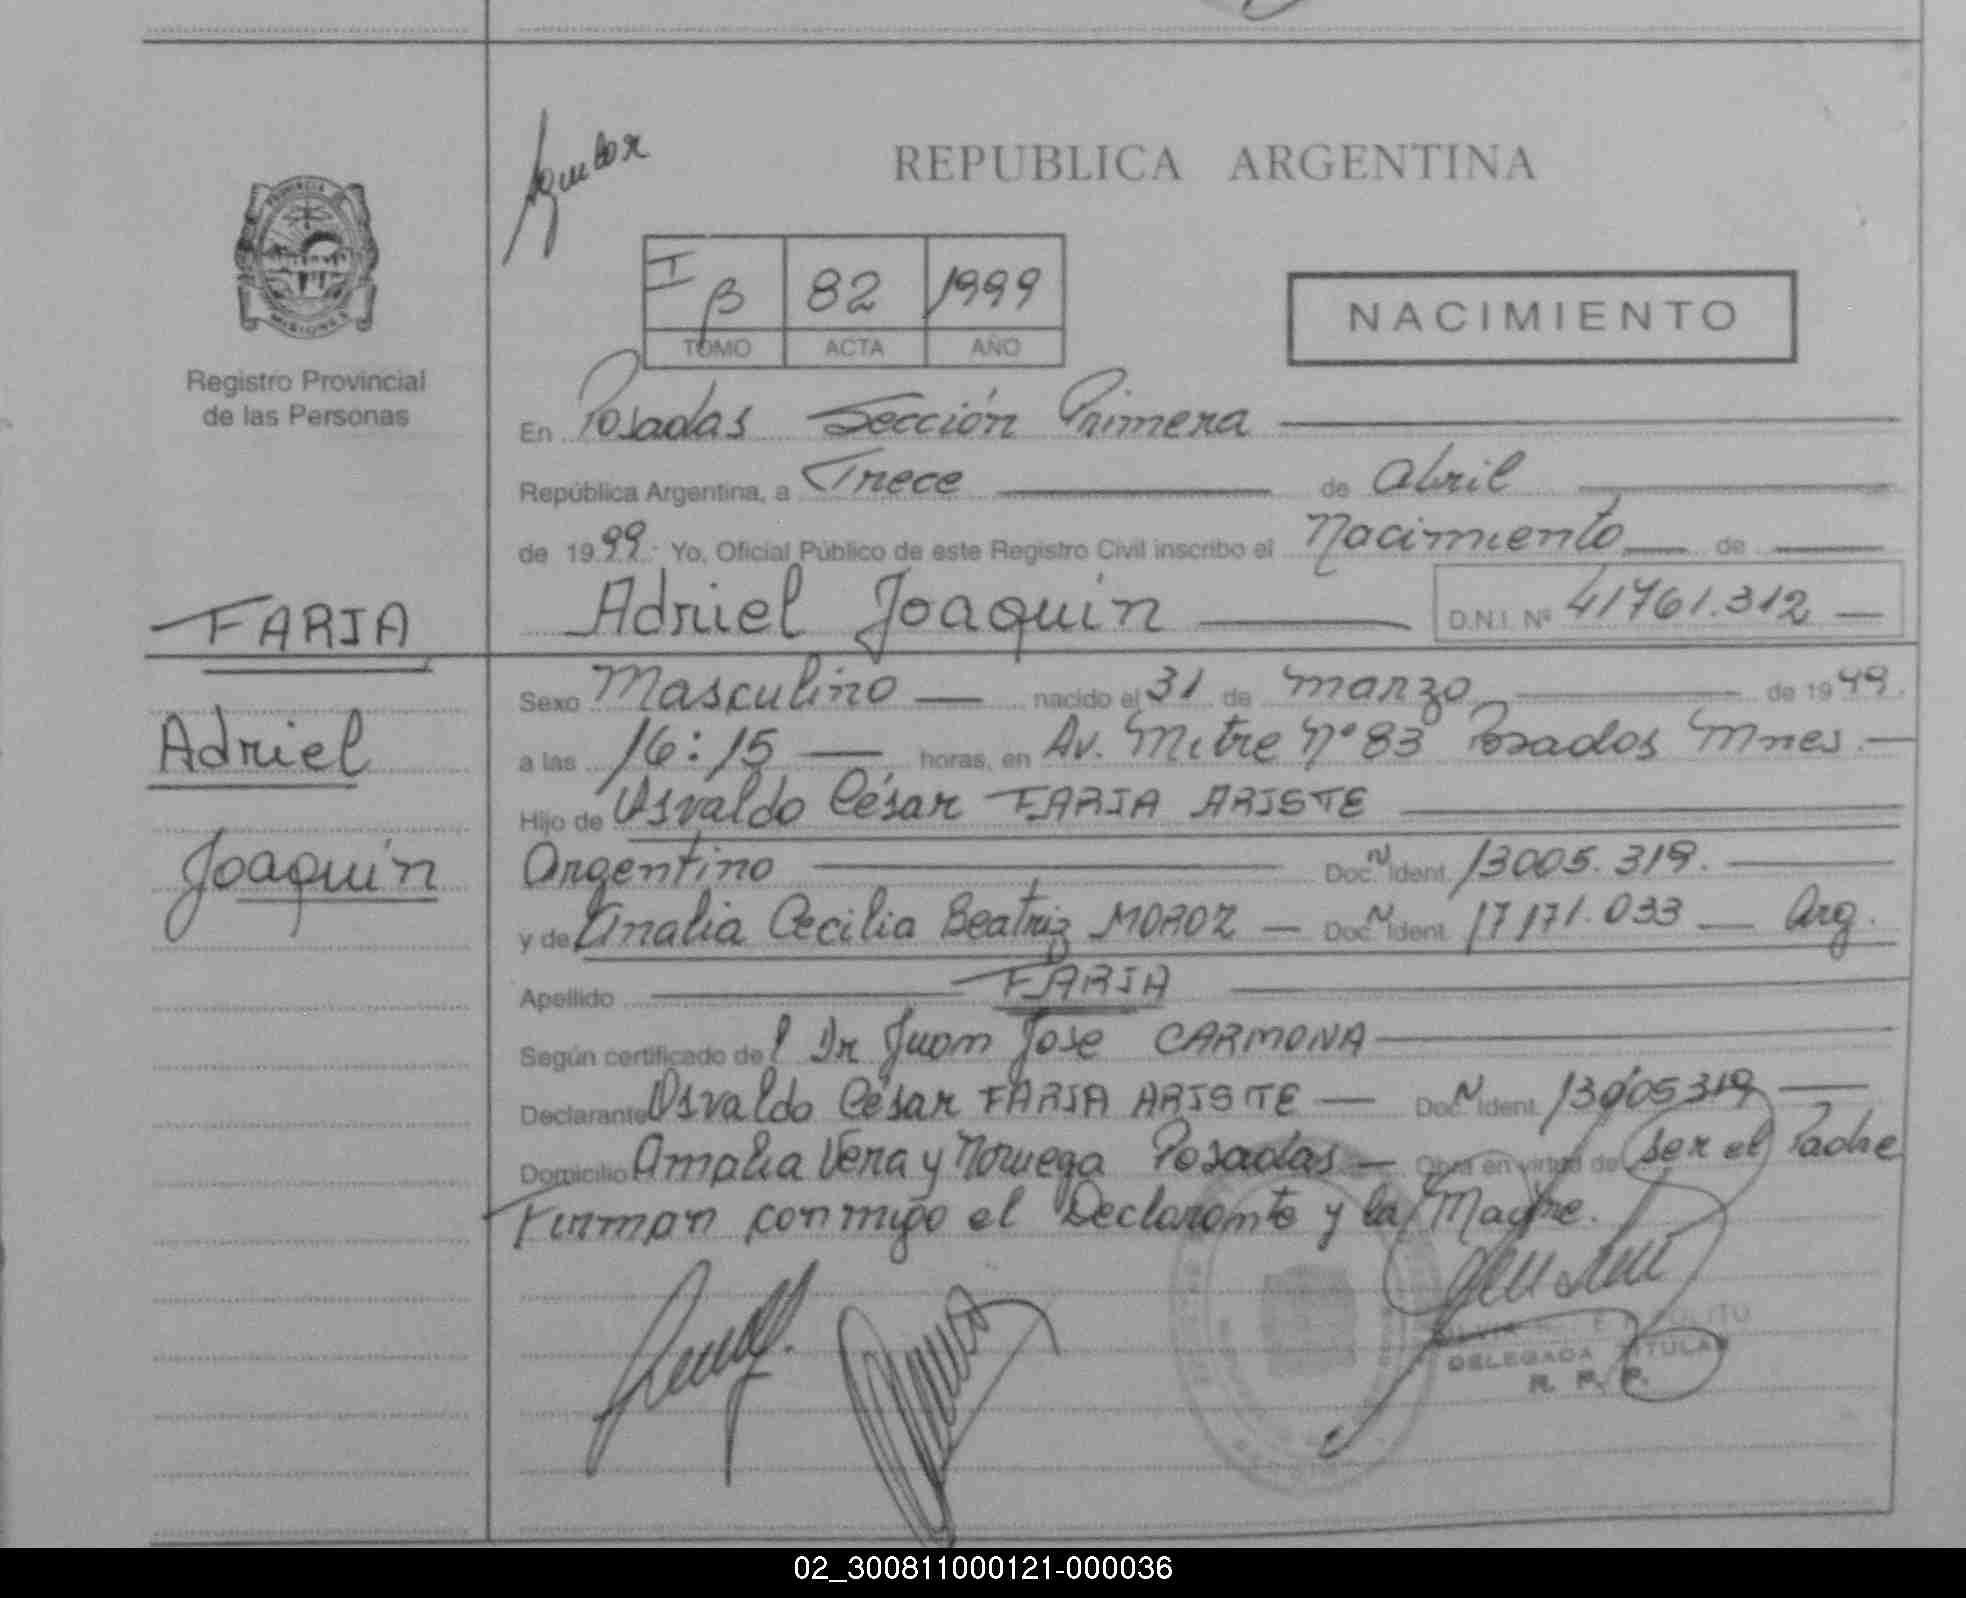 Aguilar
REPUBLICA ARGENTINA
PROVINCIA
MISIONES
Registro Provincial
de las Personas
I B 82 1999
TOMO ACTA AÑO
NACIMIENTO
En Posadas Sección Primera
República Argentina, a Trece de Abril
de 1999 Yo, Oficial Público de este Registro Civil inscribo el Nacimiento de
FARIA
Adriel Joaquín D.N.I. Nº 41761.312
Adriel
Joaquín
Sexo Masculino nacido el 31 de Marzo de 1999.
a las 16:15 horas, en Av. Mitre Nº 83 Posadas Mnes.
Hijo de Osvaldo César FARIA ARISTE
Argentino Doc. N Ident. 13005.319.
y de Amalia Cecilia Beatriz MOROZ Doc. N Ident. 17171.033 Arg.
Apellido FARIA
Según certificado del Dr Juan Jose CARMONA
Declarante Osvaldo César FARIA ARISTE Doc. N Ident. 13005319
Domicilio Amalia Vera y Noruega Posadas Obra en virtud de ser el Padre
Firman conmigo el Declarante y la Madre.
DELEGADA TITULAR
R. P. P.
02_300811000121-000036